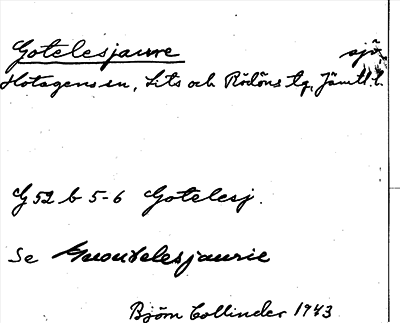 Gotelesjaure sjö
Hotagens sn, Lits och Rödöns tg, Jämtl. l.
G 52 b 5-6 Gotelesj.
Se Guoutelesjaurie
Björn Collinder 1943